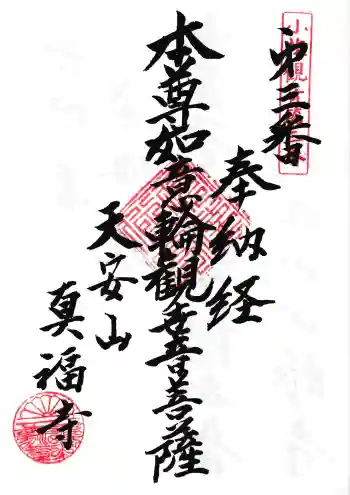 第三番
奉納経
本尊如意輪観世音菩薩
天安山
真福寺